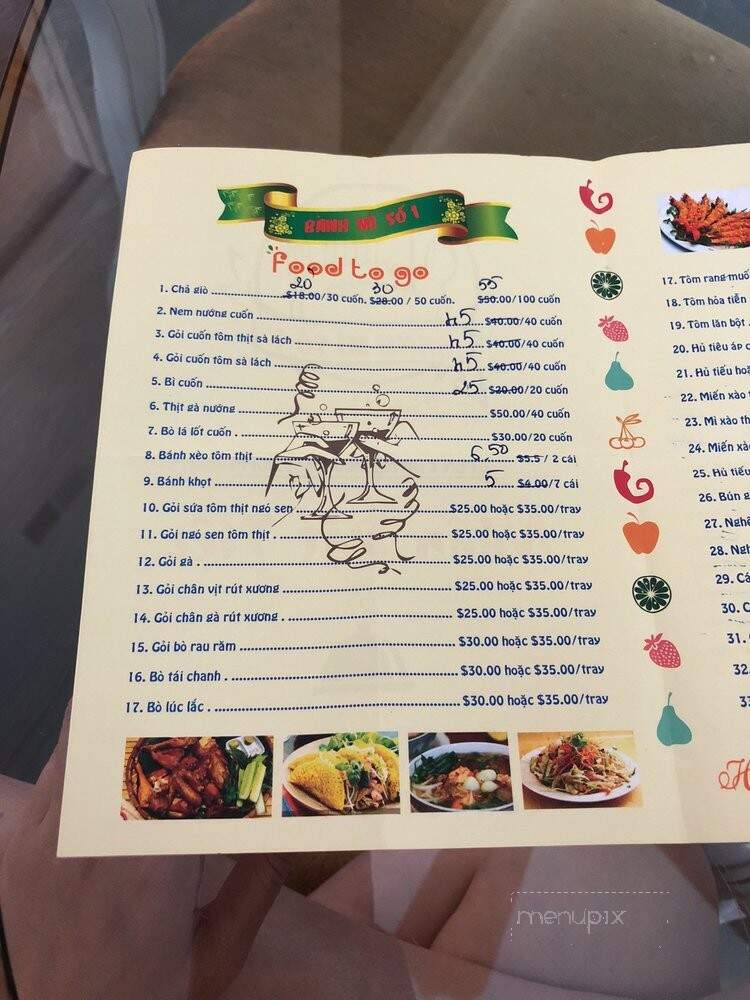 BÁNH MÌ SỐ 1
Food to go
20 30 55
1. Chả giò ........ $18.00/30 cuốn. $28.00 / 50 cuốn. $50.00/100 cuốn
2. Nem nướng cuốn ........ 45 $40.00/40 cuốn
3. Gỏi cuốn tôm thịt sà lách ........ 45 $40.00/40 cuốn
4. Gỏi cuốn tôm sà lách ........ 45 $40.00/40 cuốn
5. Bì cuốn ........ 25 $20.00/20 cuốn
6. Thịt gà nướng ........ $50.00/40 cuốn
7. Bò lá lốt cuốn . ........ $30.00/20 cuốn
8. Bánh xèo tôm thịt ........ 6.50 $5.5 / 2 cái
9. Bánh khọt ........ 5 $4.00/7 cái
10. Gỏi sứa tôm thịt ngó sen ........ $25.00 hoặc $35.00/tray
11. Gỏi ngó sen tôm thịt . ........ $25.00 hoặc $35.00/tray
12. Gỏi gà . ........ $25.00 hoặc $35.00/tray
13. Gỏi chân vịt rút xương ........ $25.00 hoặc $35.00/tray
14. Gỏi chân gà rút xương . ........ $25.00 hoặc $35.00/tray
15. Gỏi bò rau răm ........ $30.00 hoặc $35.00/tray
16. Bò tái chanh . ........ $30.00 hoặc $35.00/tray
17. Bò lúc lắc . ........ $30.00 hoặc $35.00/tray
17. Tôm rang muố
18. Tôm hỏa tiễn
19. Tôm lăn bột .
20. Hủ tiếu áp c
21. Hủ tiếu hoặ
22. Miến xào t
23. Mì xào th
24. Miến xà
25. Hủ tiếu
26. Bún g
27. Ngh
28. Ngh
29. Cá
30. C
31.
32.
33
H
menupix